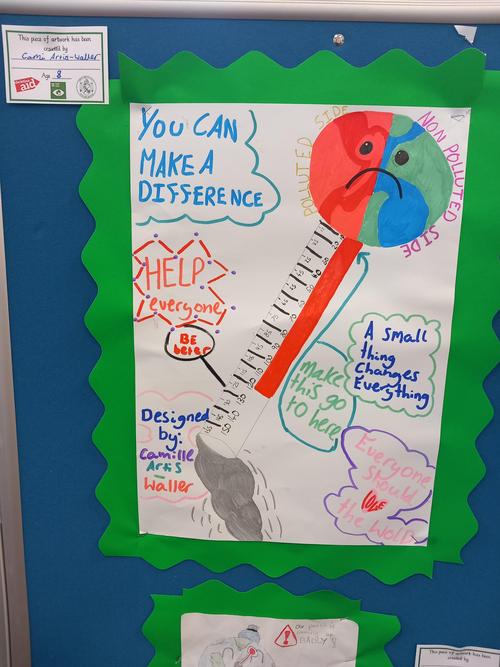 This piece of artwork has been
created by
Cami Artis-Waller
Age 8
aid
YOU CAN
MAKE A
DIFFERENCE
POLLUTED SIDE
NON POLLUTED SIDE
HELP
everyone
BE
beter
A Small
thing
Changes
Everything
Make
this go
to here
Designed
by:
Camille
Artis
-
Waller
Everyone
Should
love
the World
This piece of artwork has been
created by